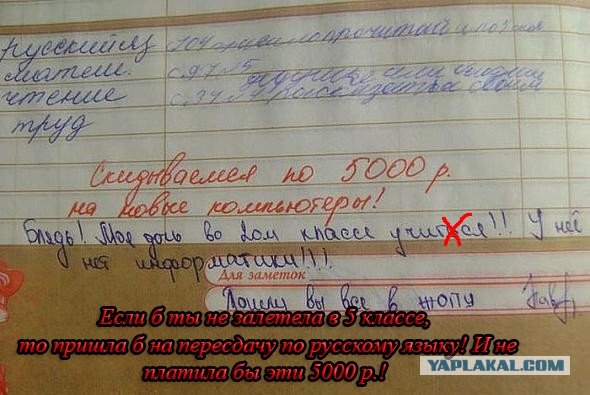 русский яз
матем. с. 97 №5
чтение с. 34
труд
Скидываемся по 5000 р.
на новые компьютеры!
Блядь! Моя дочь во 2ом классе учиться!! У неё
нет информатики!!!
Для заметок
Пошли вы все в жопу
Если б ты не залетела в 5 классе,
то пришла б на пересдачу по русскому языку! И не
платила бы эти 5000 р.!
YAPLAKAL.COM